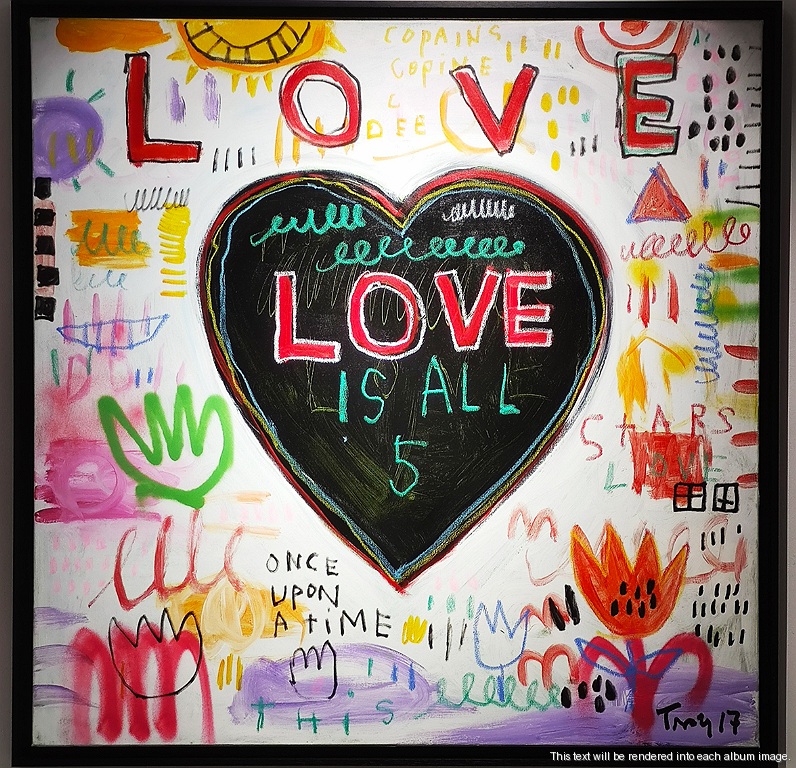 COPAINS
COPINE
L O V E
C
DEE
LOVE
IS ALL
5
STARS
LOVE
ONCE
UPON
A TIME
THIS
Troy 17
This text will be rendered into each album image.